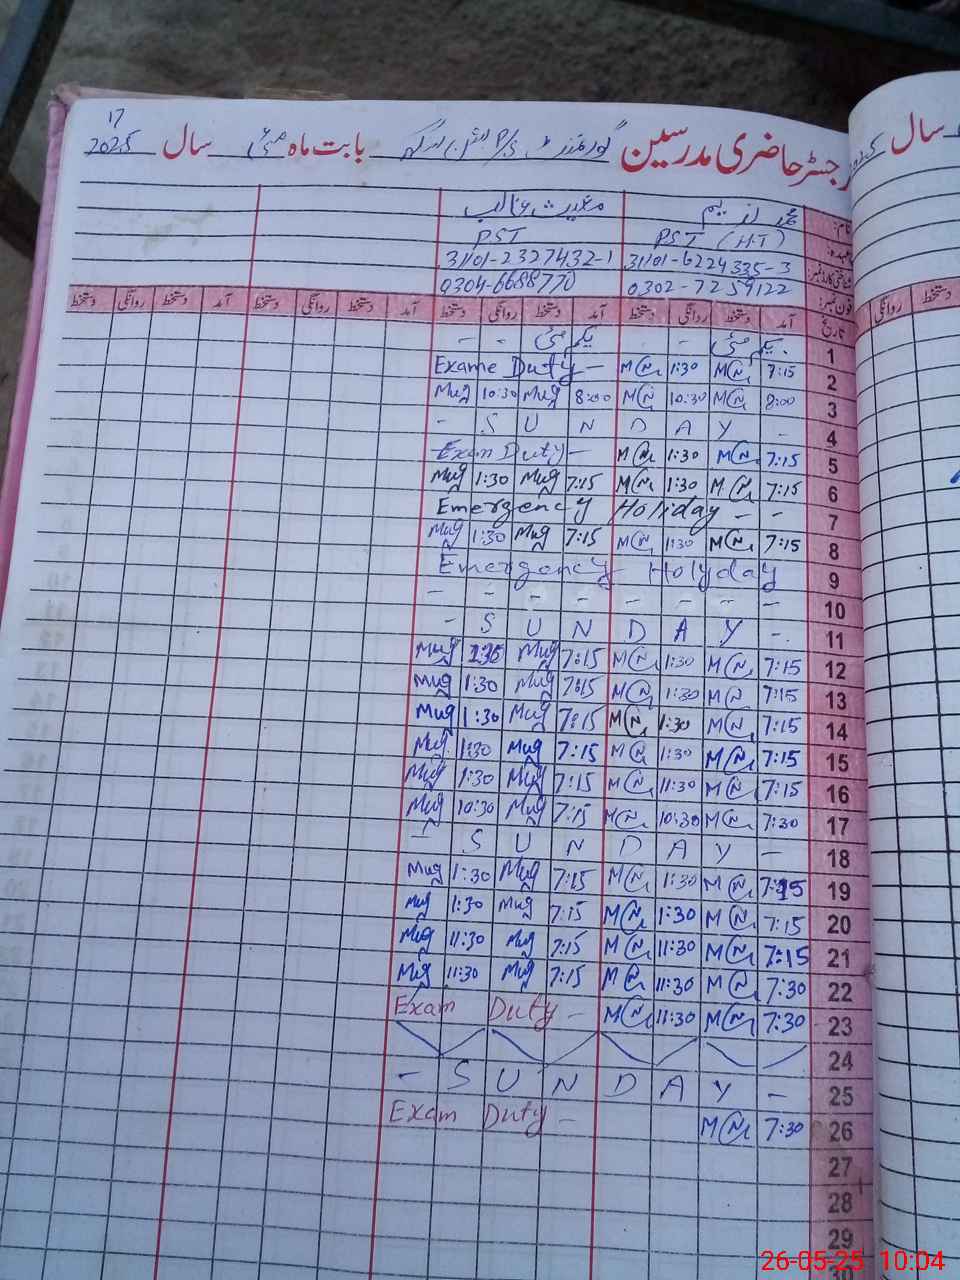 17
رجسٹر حاضری مدرسین گورنمنٹ بابت ماہ مئی سال 2025
نام:
PST (HT) PST
شناختی کارڈ نمبر: 31101-6224335-3 31101-2327432-1
فون نمبر: 0302-7259122 0304-6688770
تاریخ آمد دستخط روانگی دستخط آمد دستخط روانگی دستخط آمد دستخط روانگی دستخط آمد دستخط روانگی دستخط
1 یکم مئی - - یکم مئی - -
Exame Duty - M N 1:30 M N 7:15 2
Mug 10:30 Mug 8:00 M N 10:30 M N 8:00 3
- S U N D A Y - 4
Exam Duty - M N 1:30 M N 7:15 5
Mug 1:30 Mug 7:15 M N 1:30 M N 7:15 6
Emergency Holiday - - 7
Mug 1:30 Mug 7:15 M N 1:30 M N 7:15 8
Emergency Holyday 9
- - - - - - - - 10
- S U N D A Y - 11
Mug 1:30 Mug 7:15 M N 1:30 M N 7:15 12
Mug 1:30 Mug 7:15 M N 1:30 M N 7:15 13
Mug 1:30 Mug 7:15 M N 1:30 M N 7:15 14
Mug 1:30 Mug 7:15 M N 1:30 M N 7:15 15
Mug 1:30 Mug 7:15 M N 11:30 M N 7:15 16
Mug 10:30 Mug 7:15 M N 10:30 M N 7:30 17
- S U N D A Y - 18
Mug 1:30 Mug 7:15 M N 1:30 M N 7:15 19
Mug 1:30 Mug 7:15 M N 1:30 M N 7:15 20
Mug 11:30 Mug 7:15 M N 11:30 M N 7:15 21
Mug 11:30 Mug 7:15 M N 11:30 M N 7:30 22
Exam Duty - M N 11:30 M N 7:30 23
24
- S U N D A Y - 25
Exam Duty - M N 7:30 26
27
28
29
26-05-25 10:04
سال
دستخط روانگی